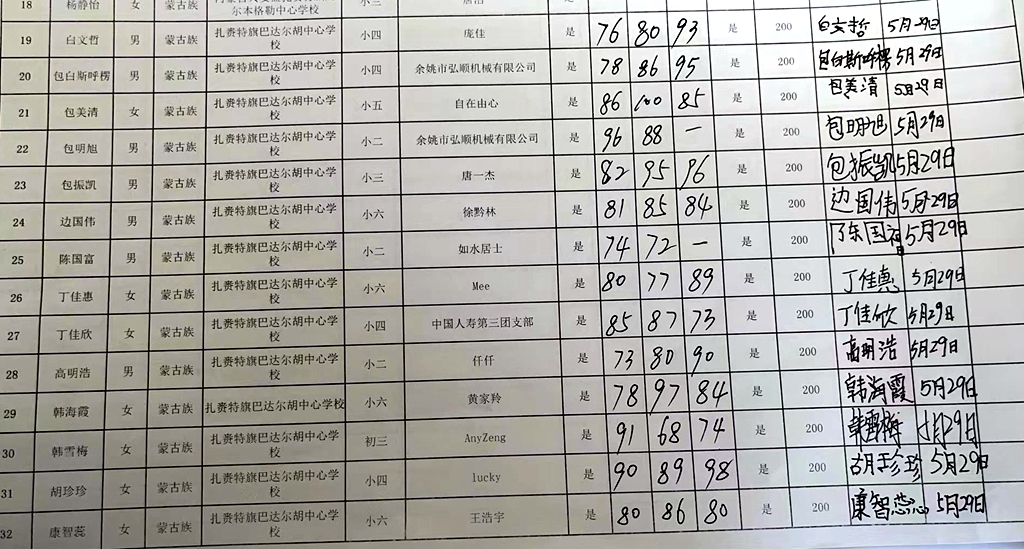 18 杨静怡 女 蒙古族 尔本格勒中心学校 小三 唐洁
19 白文哲 男 蒙古族 扎赉特旗巴达尔胡中心学校 小四 庞佳 是 76 80 93 是 200 白文哲 5月29日
20 包白斯呼楞 男 蒙古族 扎赉特旗巴达尔胡中心学校 小四 余姚市弘顺机械有限公司 是 78 86 95 是 200 包白斯呼楞 5月29日
21 包美清 女 蒙古族 扎赉特旗巴达尔胡中心学校 小五 自在由心 是 86 100 85 是 200 包美清 5月29日
22 包明旭 男 蒙古族 扎赉特旗巴达尔胡中心学校 小二 余姚市弘顺机械有限公司 是 96 88 — 是 200 包明旭 5月29日
23 包振凯 男 蒙古族 扎赉特旗巴达尔胡中心学校 小三 唐一杰 是 82 95 96 是 200 包振凯 5月29日
24 边国伟 男 蒙古族 扎赉特旗巴达尔胡中心学校 小六 徐黔林 是 81 85 84 是 200 边国伟 5月29日
25 陈国富 男 蒙古族 扎赉特旗巴达尔胡中心学校 小二 如水居士 是 74 72 — 是 200 陈国富 5月29日
26 丁佳惠 女 蒙古族 扎赉特旗巴达尔胡中心学校 小六 Mee 是 80 77 89 是 200 丁佳惠 5月29日
27 丁佳欣 女 蒙古族 扎赉特旗巴达尔胡中心学校 小四 中国人寿第三团支部 是 85 87 73 是 200 丁佳欣 5月29日
28 高明浩 男 蒙古族 扎赉特旗巴达尔胡中心学校 小二 仟仟 是 73 80 90 是 200 高明浩 5月29日
29 韩海霞 女 蒙古族 扎赉特旗巴达尔胡中心学校 小六 黄家羚 是 78 97 84 是 200 韩海霞 5月29日
30 韩雪梅 女 蒙古族 扎赉特旗巴达尔胡中心学校 初三 AnyZeng 是 91 68 74 是 200 韩雪梅 5月29日
31 胡珍珍 女 蒙古族 扎赉特旗巴达尔胡中心学校 小四 lucky 是 90 89 98 是 200 胡珍珍 5月29日
32 康智蕊 女 蒙古族 扎赉特旗巴达尔胡中心学校 小六 王浩宇 是 80 86 80 是 200 康智蕊 5月29日